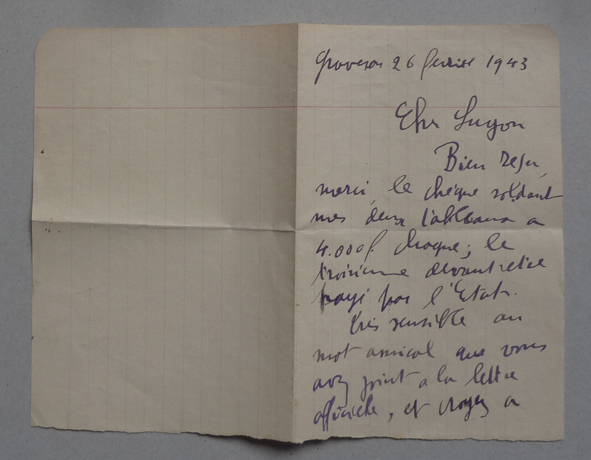 26 février 1943
Cher
Bien reçu,
merci le chèque soldant
mes deux tableaux a
4.000f chaque; le
troisième devant etre
payé par l'Etat.
très sensible au
mot amical que vous
avez joint a la lettre
officielle, et croyez a